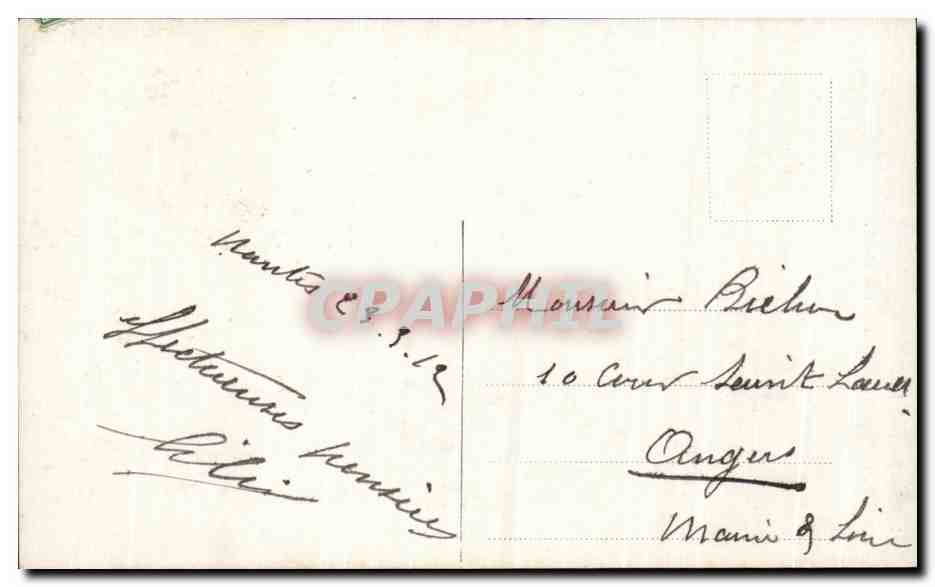 Nantes 23.3.12
Affectueuses pensées
Lili
Monsieur Bichon
10 Cour Saint Laud
Angers
Maine & Loire
CPAPHIL